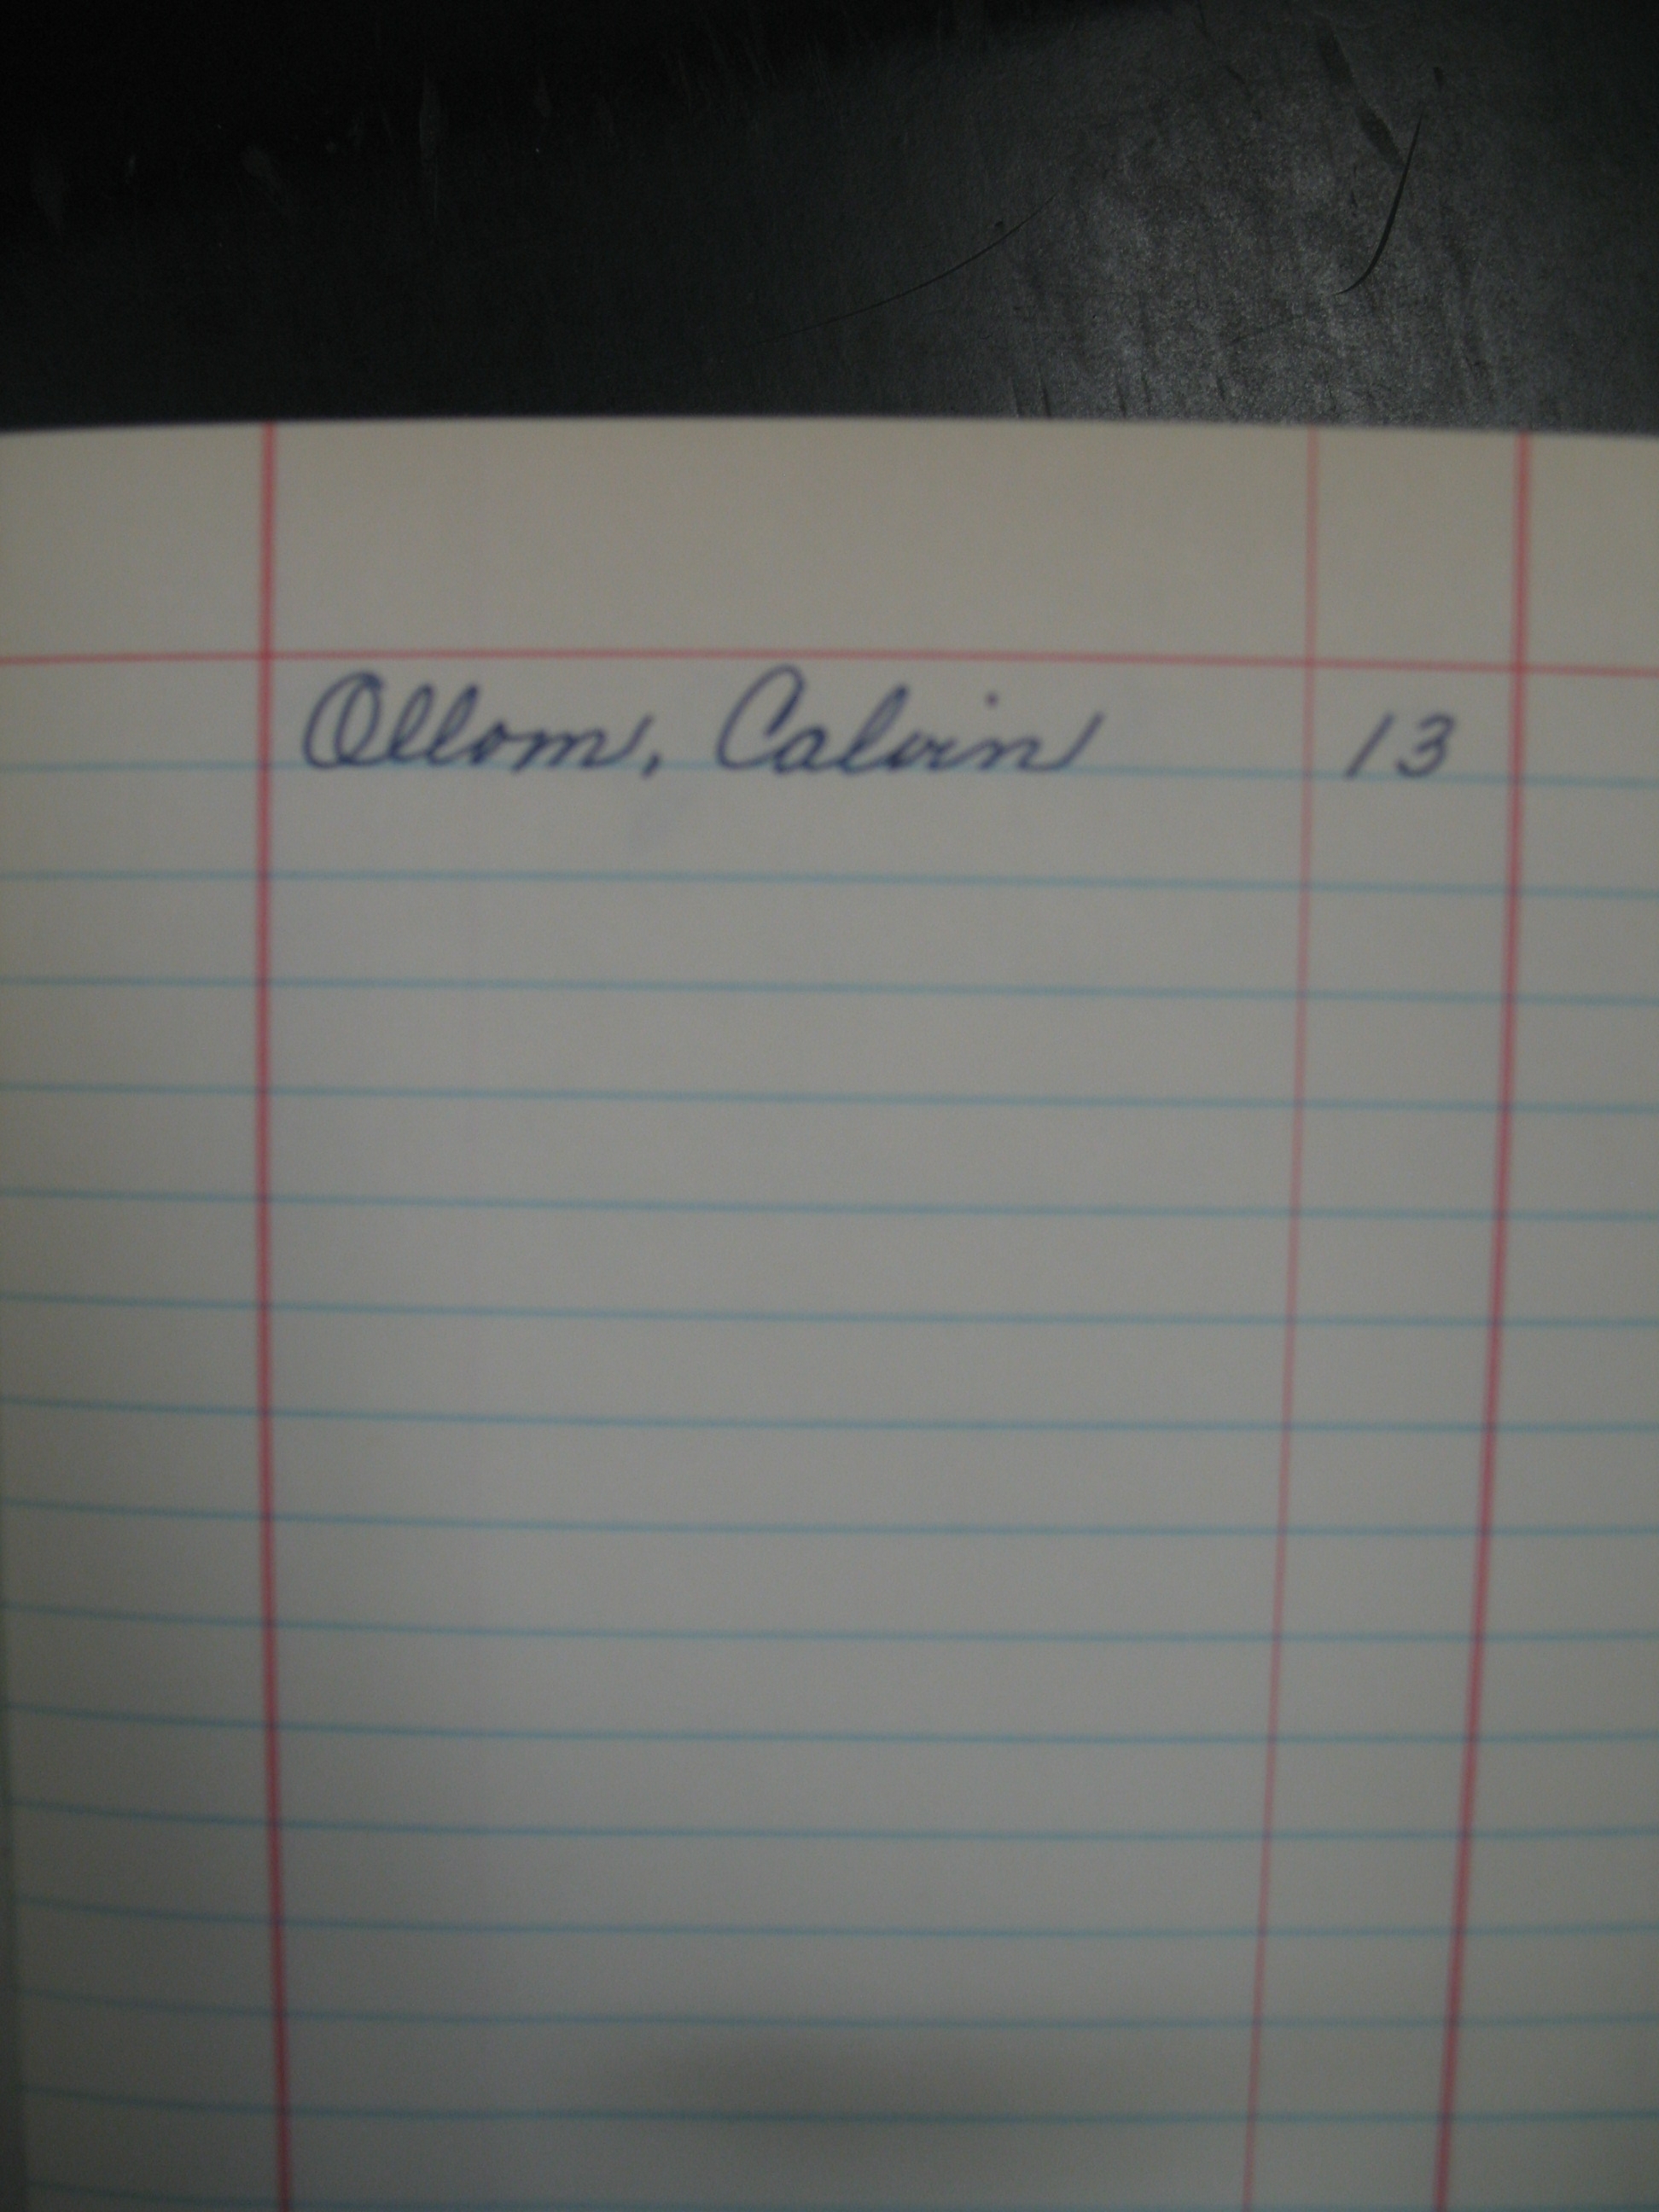 Ollom, Calvin 13